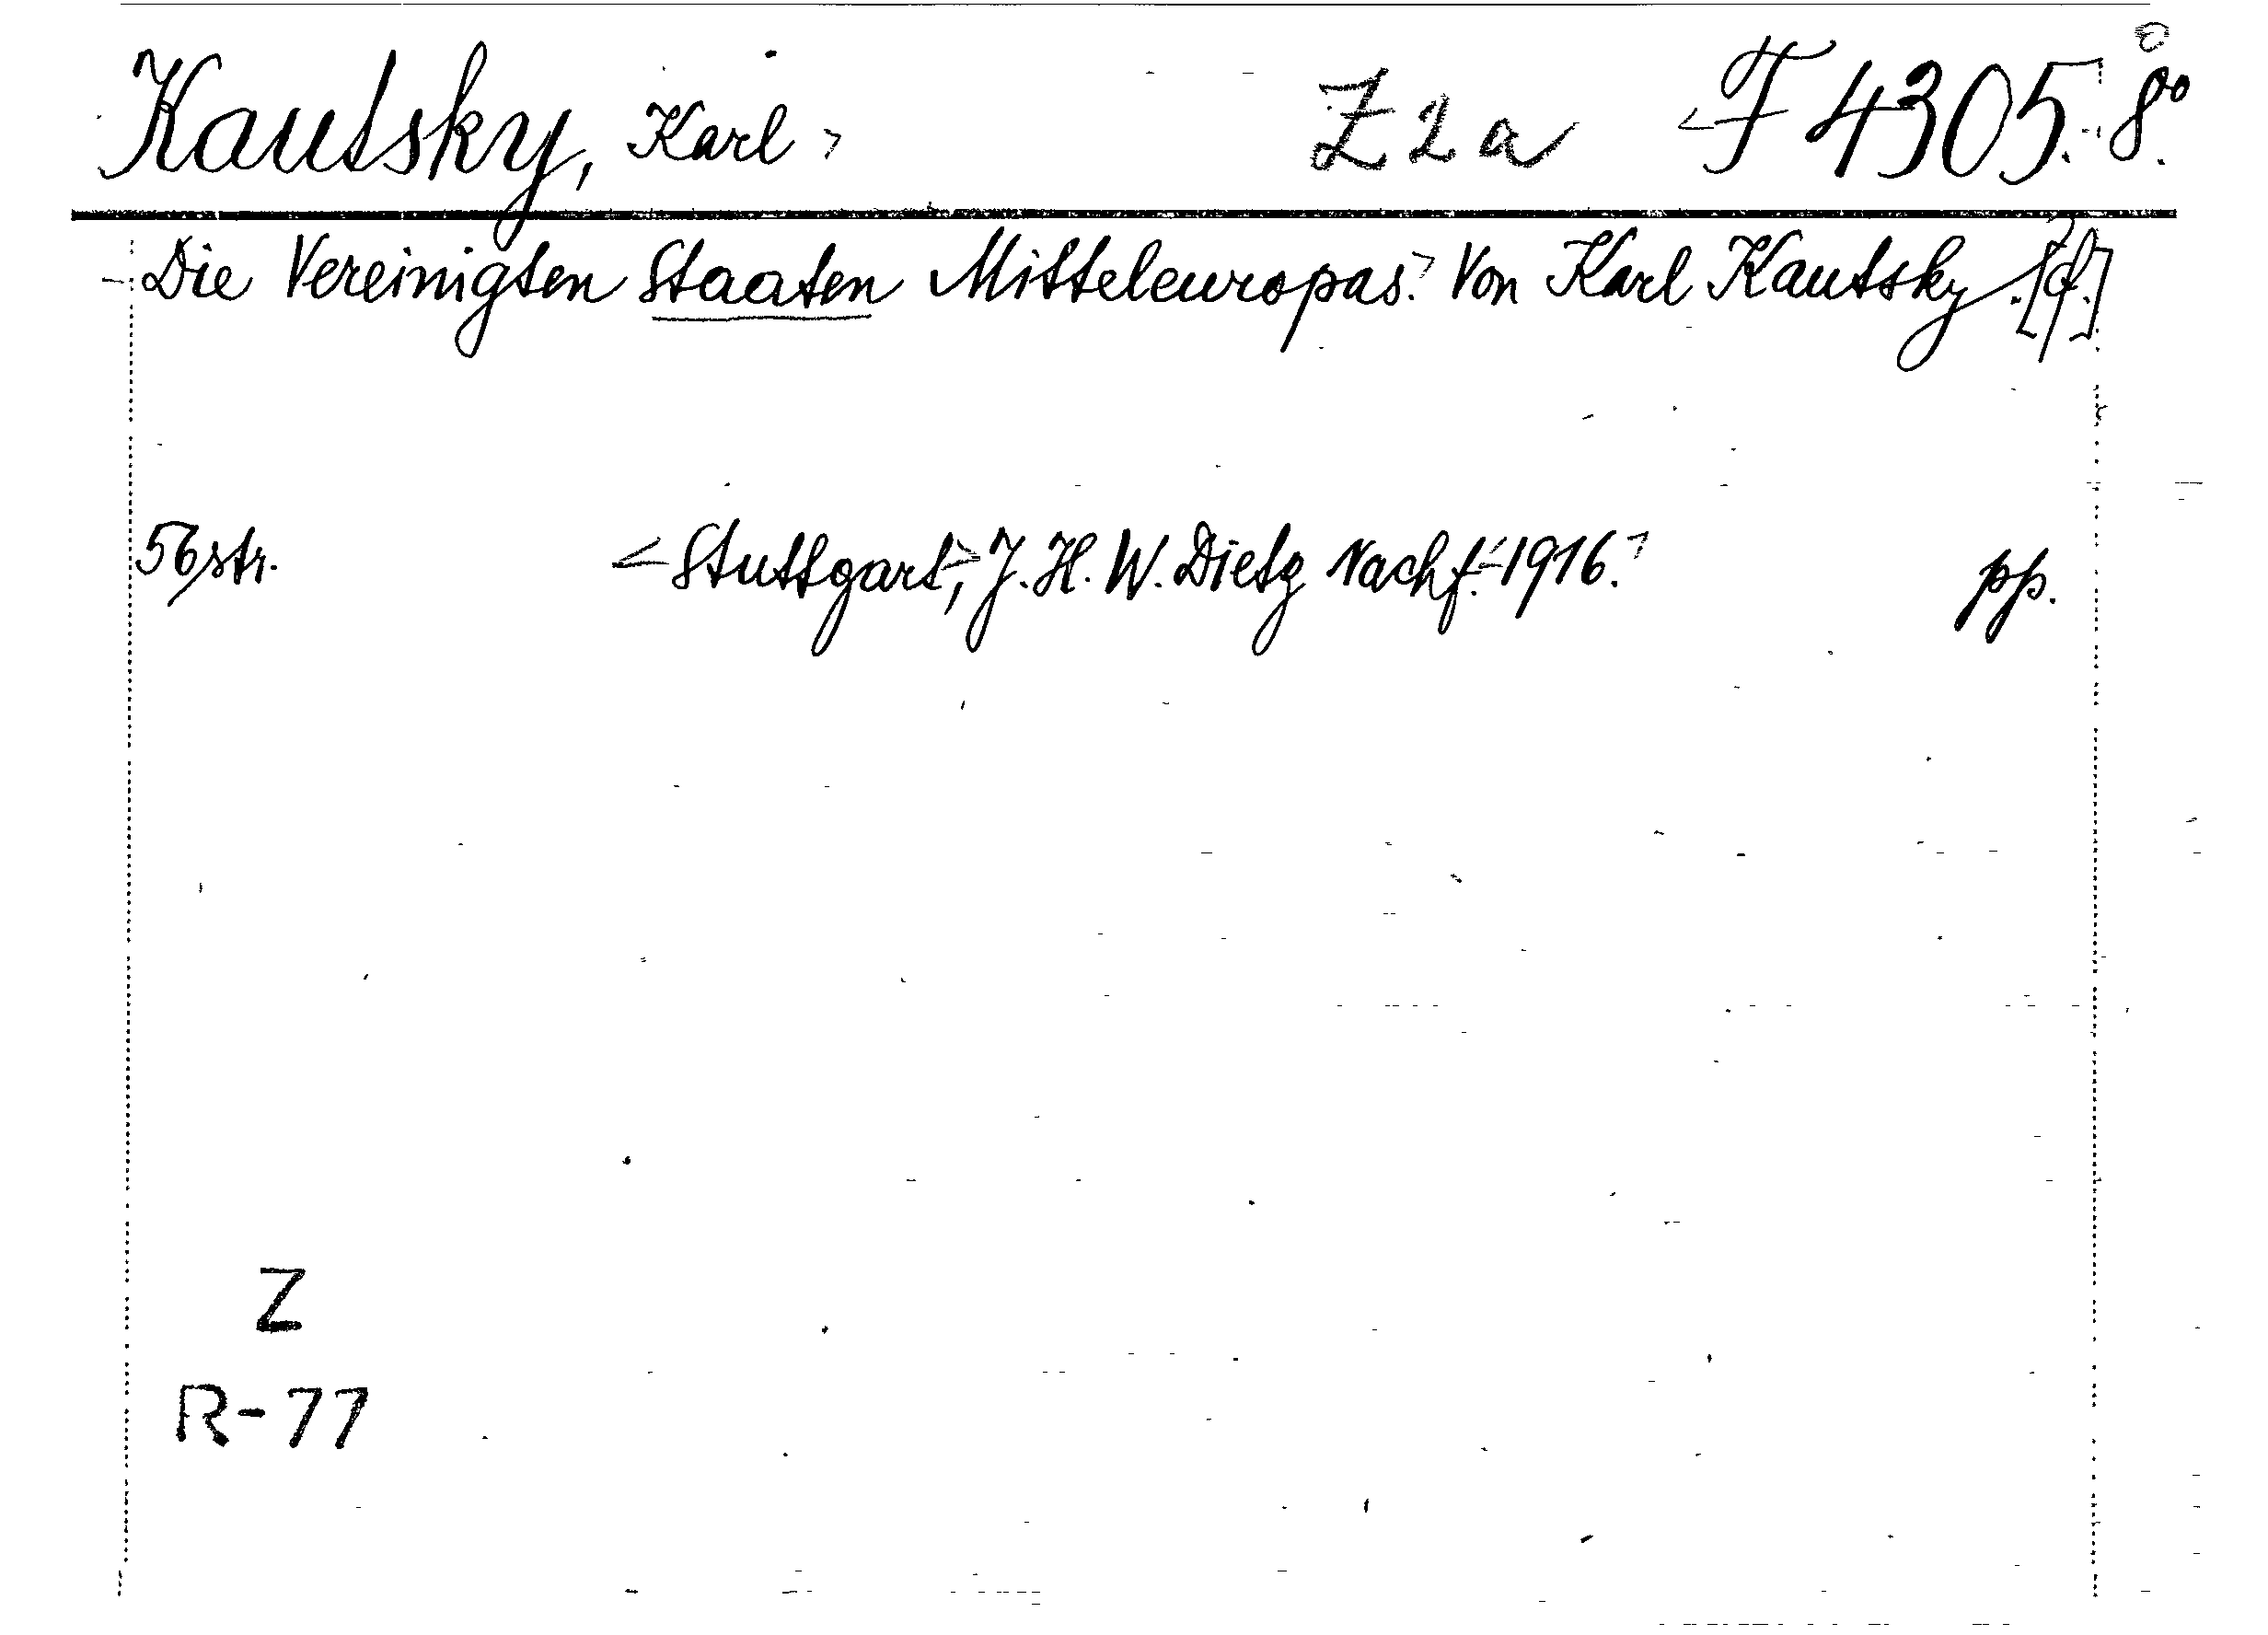 Kautsky, Karl Z 2 a F 4305. 8°.
Die Vereinigten Staaten Mitteleuropas. Von Karl Kautsky.
56 str. Stuttgart, J. H. W. Dietz Nachf. 1916. pp.
Z
R-77